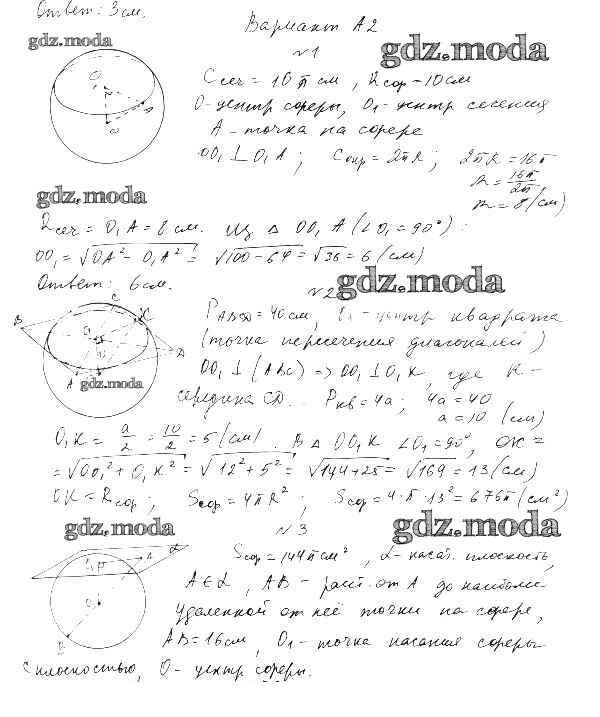 Ответ: 3 см.
Вариант А2
gdz.moda
№1
gdz.moda
Cсеч = 16π см, Rсфр = 10 см
O - центр сферы, O₁ - центр сечения
A - точка на сфере
OO₁ ⊥ O₁A; Cокр = 2πR; 2πR = 16π
R = 16π/2π
R = 8 (см)
gdz.moda
Rсеч = O₁A = 8 см. Из △ OO₁A (∠O₁ = 90°):
OO₁ = √OA² - O₁A² = √100 - 64 = √36 = 6 (см)
Ответ: 6 см.
№2
gdz.moda
PABCD = 40 см, O₁ - центр квадрата
(точка пересечения диагоналей)
OO₁ ⊥ (ABC) => OO₁ ⊥ O₁K, где K -
gdz.moda
середина CD. Pкв = 4a; 4a = 40
a = 10 (см)
O₁K = a/2 = 10/2 = 5 (см). В △ OO₁K ∠O₁ = 90°, OK =
= √OO₁² + O₁K² = √12² + 5² = √144 + 25 = √169 = 13 (см)
OK = Rсфр; Sсфр = 4πR²; Sсфр = 4·π·13² = 676π (см²)
gdz.moda
№3
gdz.moda
Sсфр = 144π см², α - касат. плоскость,
A ∈ α, AB - расст. от A до наиболее
удаленной от неё точки на сфере,
AB = 16 см, O₁ - точка касания сферы
с плоскостью, O - центр сферы.